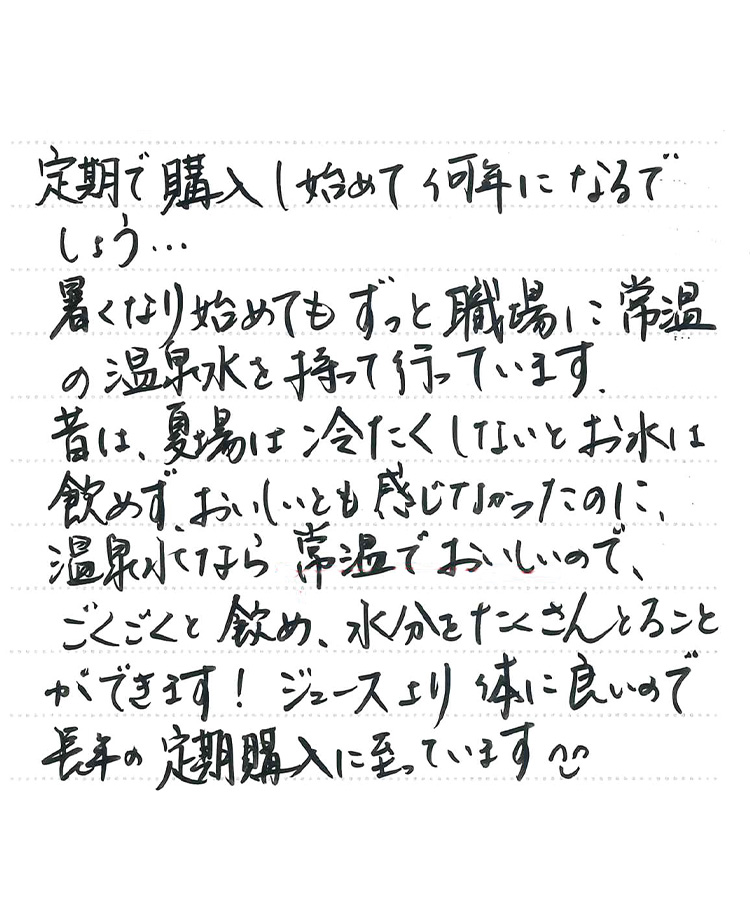 定期で購入し始めて何年になるで
しょう…
暑くなり始めてもずっと職場に常温
の温泉水を持って行っています。
昔は、夏場は冷たくしないとお水は
飲めず、おいしいとも感じなかったのに、
温泉水なら常温でおいしいので、
ごくごくと飲め、水分をたくさんとること
ができます！ジュースより体に良いので
長年の定期購入に至っています